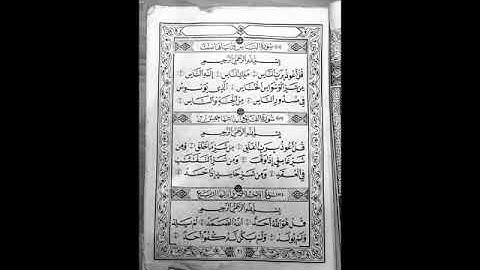 سورة الناس
بسم الله الرحمن الرحيم
قل أعوذ برب الناس ملك الناس إله الناس
من شر الوسواس الخناس الذي يوسوس
في صدور الناس من الجنة والناس
سورة الفلق
بسم الله الرحمن الرحيم
قل أعوذ برب الفلق من شر ما خلق ومن
شر غاسق إذا وقب ومن شر النفاثات
في العقد ومن شر حاسد إذا حسد
بسم الله الرحمن الرحيم
قل هو الله أحد الله الصمد لم يلد
ولم يولد ولم يكن له كفوا أحد